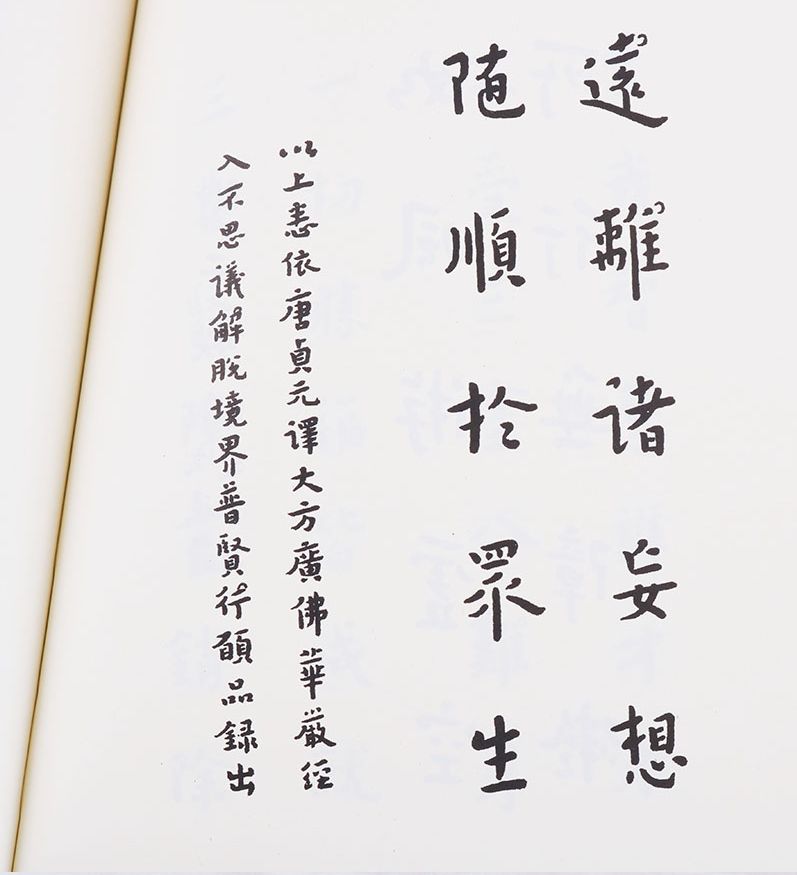 遠離諸妄想
隨順於眾生
以上悉依唐貞元譯大方廣佛華嚴經
入不思議解脫境界普賢行願品錄出